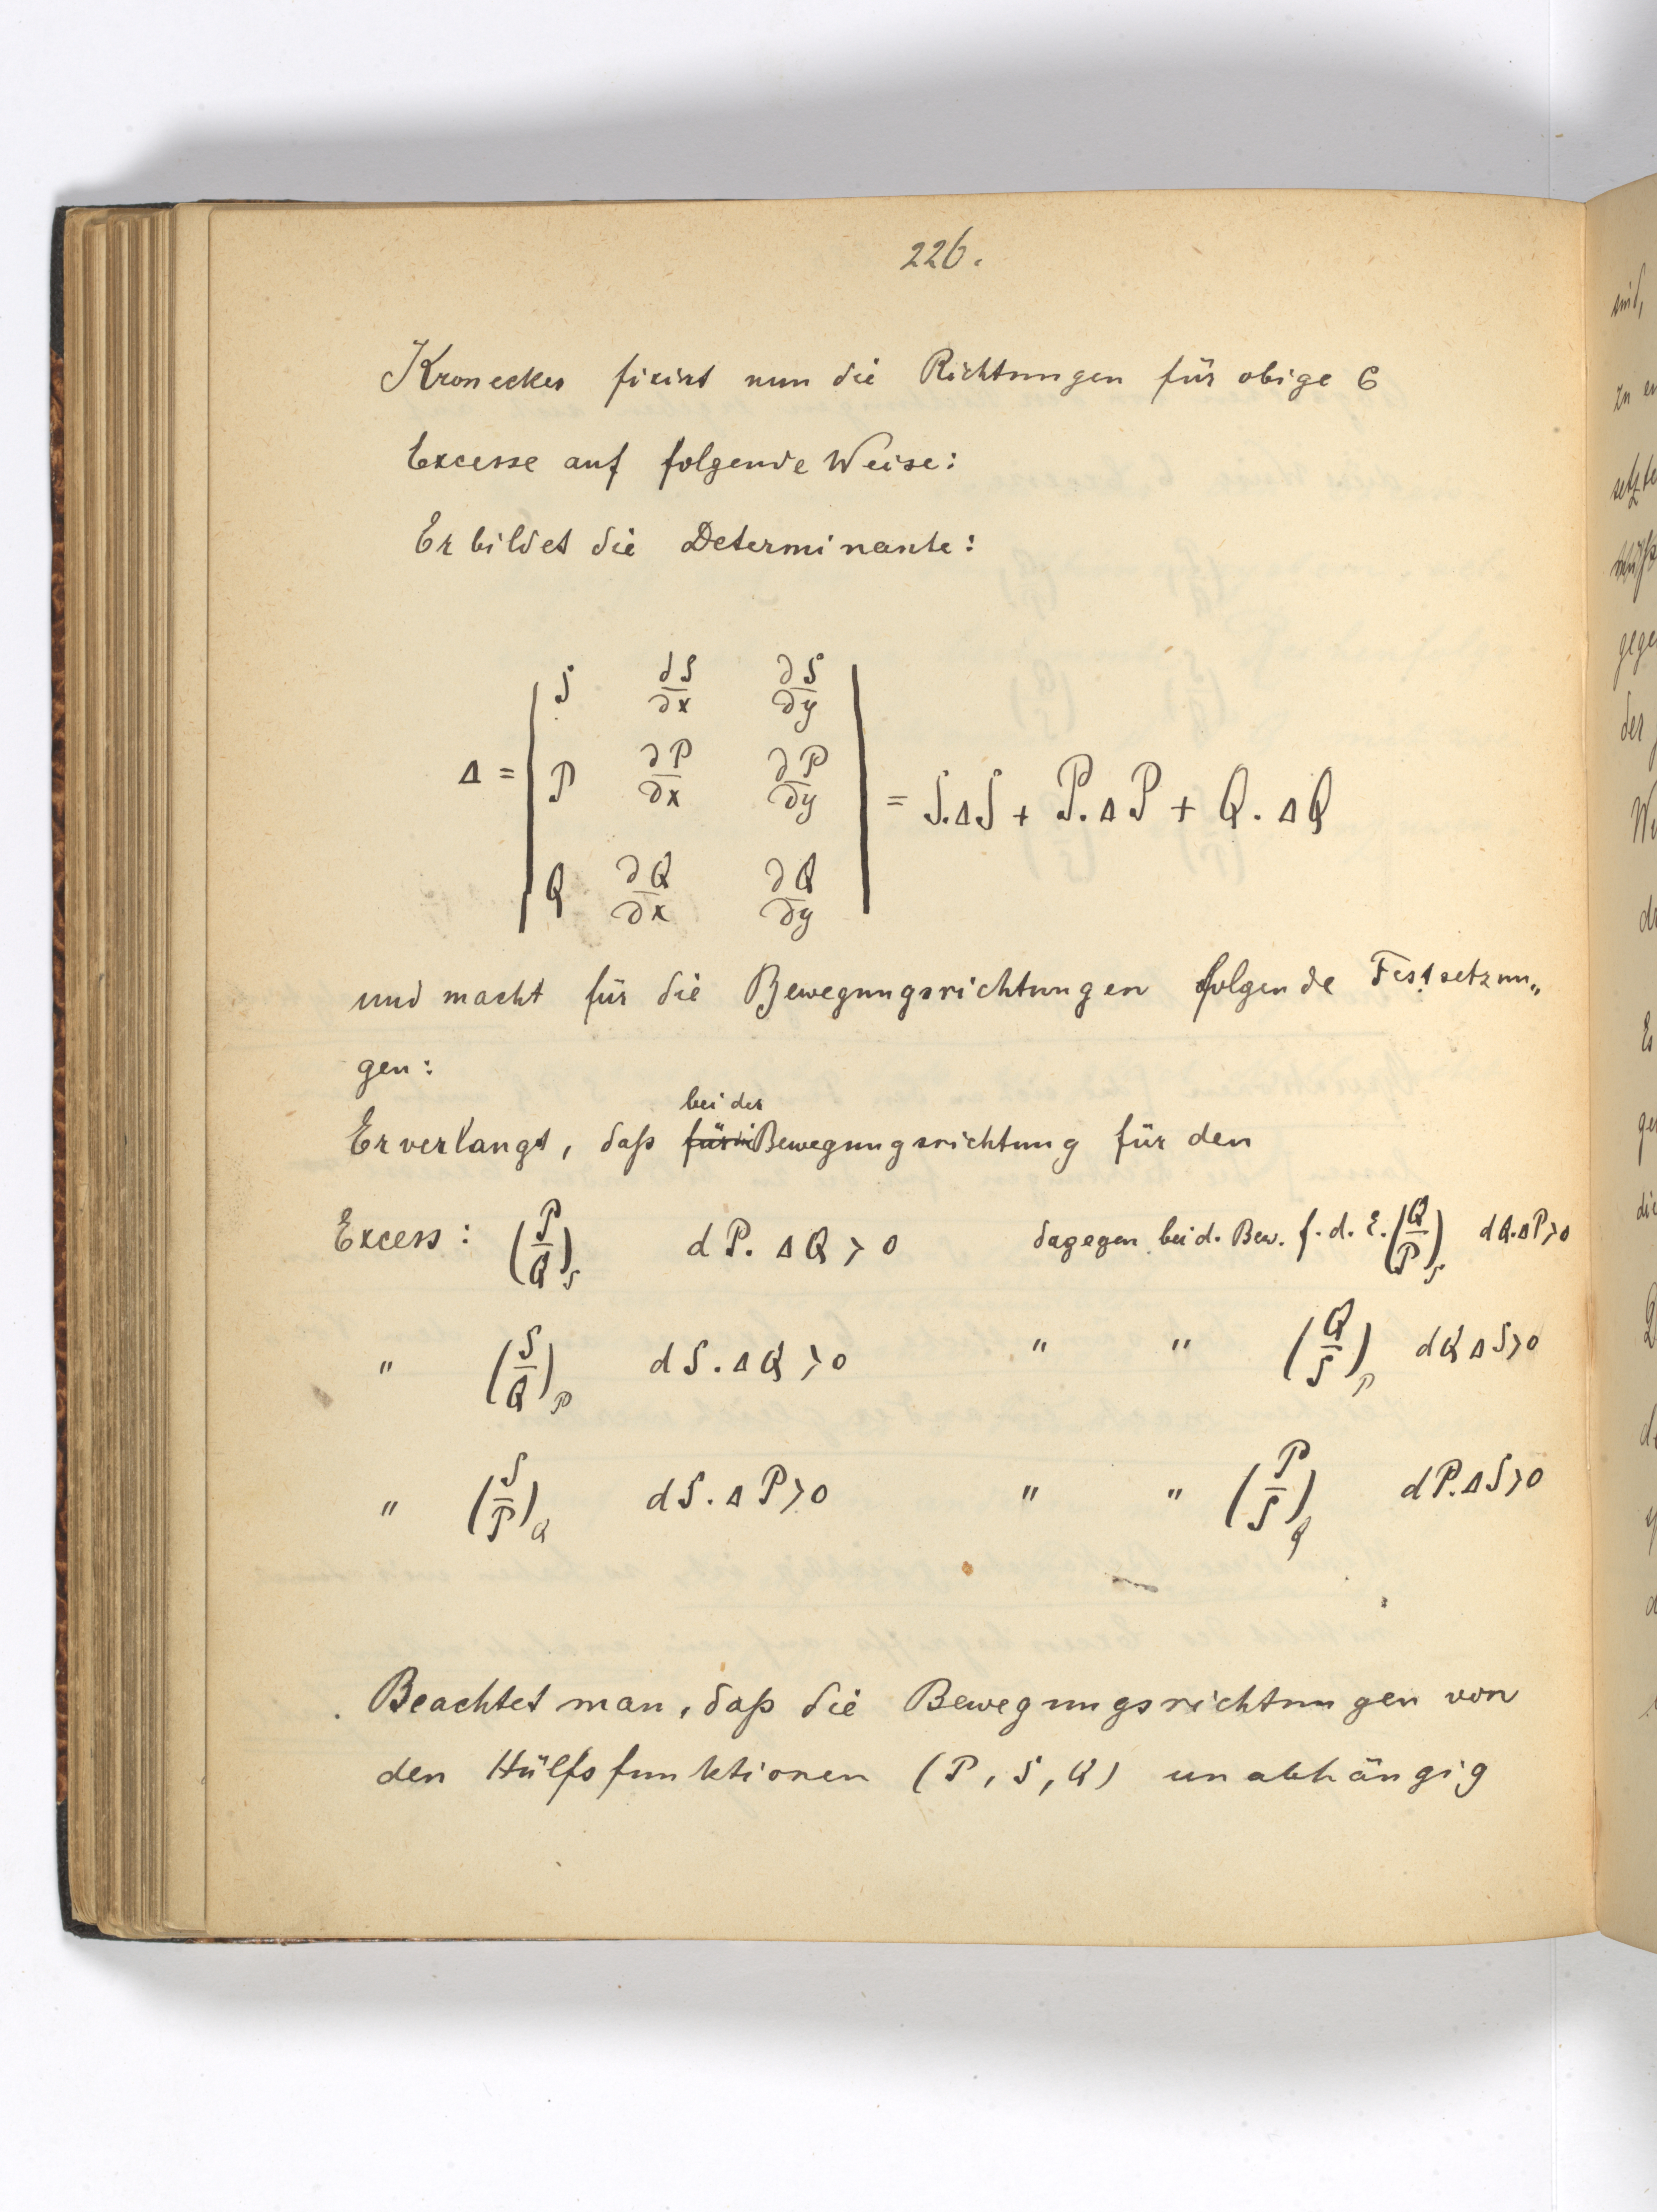 226.
Kronecker fixirt nun die Richtungen für obige 6
Excesse auf folgende Weise:
Er bildet die Determinante:
Δ = | S dS/∂x ∂S/∂y |
| P ∂P/∂x ∂P/∂y | = S.ΔS + P.ΔP + Q.ΔQ
| Q ∂Q/∂x ∂Q/∂y |
und macht für die Bewegungsrichtungen folgende Festsetzun„
gen:
bei der
Er verlangt, daß für Bewegungsrichtung für den
Excess: (P/Q)_S dP. ΔQ > 0 dagegen bei d. Bew. f. d. E. (Q/P)_S dQ.ΔP>0
" (S/Q)_P dS.ΔQ >0 " " (Q/S)_P dQ ΔS>0
" (S/P)_Q dS.ΔP>0 " " (P/S)_Q dP.ΔS>0
Beachtet man, daß die Bewegungsrichtungen von
den Hülfsfunktionen (P, S, Q) unabhängig